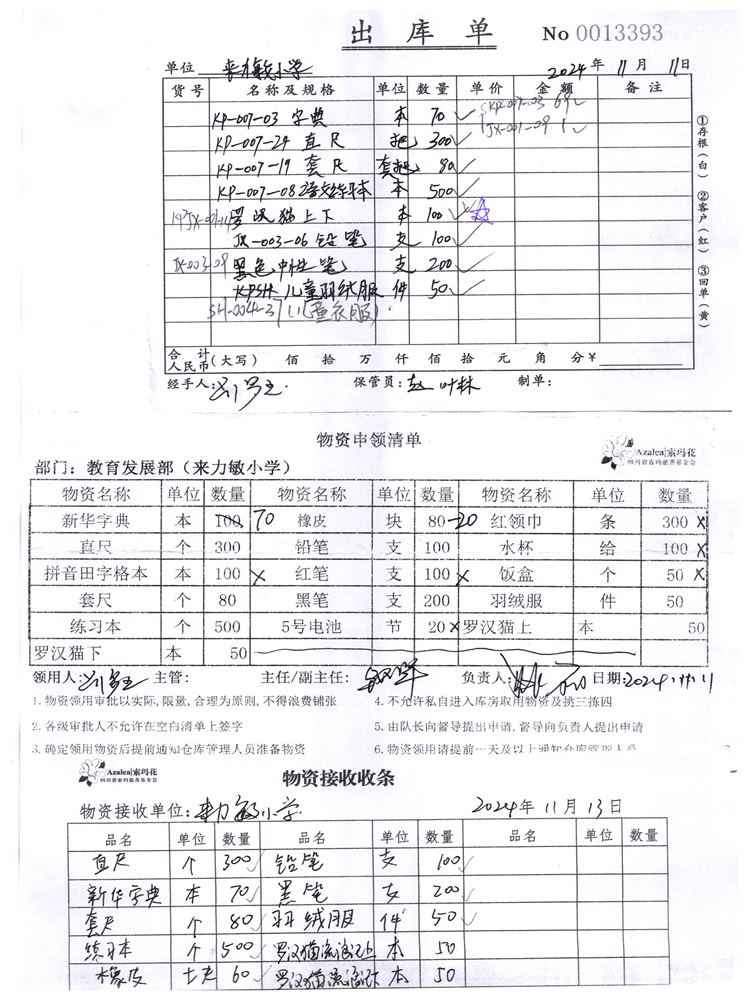 出库单 No 0013393
单位 来力敏小学 2024年11月11日
货号 名称及规格 单位 数量 单价 金额 备注
KP-007-03 字典 本 70
KP-007-24 直尺 把 300
KP-007-19 套尺 套 80
KP-007-08 语文练习本 本 500
罗汉猫上下 本 100
JX-003-06 铅笔 支 100
JX-003-09 黑色中性笔 支 200
儿童羽绒服 件 50
SH-004-37(儿童衣服)
合计
人民币(大写) 佰 拾 万 仟 佰 拾 元 角 分 ¥
经手人: 保管员: 赵叶林 制单:
①存根(白) ②客户(红) ③回单(黄)
物资申领清单
Azalea|索玛花
四川省索玛慈善基金会
部门:教育发展部(来力敏小学)
物资名称 单位 数量 物资名称 单位 数量 物资名称 单位 数量
新华字典 本 100 70 橡皮 块 80-20 红领巾 条 300 X
直尺 个 300 铅笔 支 100 水杯 给 100 X
拼音田字格本 本 100 X 红笔 支 100 X 饭盒 个 50 X
套尺 个 80 黑笔 支 200 羽绒服 件 50
练习本 个 500 5号电池 节 20 X 罗汉猫上 本 50
罗汉猫下 本 50
领用人: 主管: 主任/副主任: 负责人: 日期:2024.11.11
1.物资领用审批以实际,限量,合理为原则,不得浪费铺张 4.不允许私自进入库房取用物资及挑三拣四
2.各级审批人不允许在空白清单上签字 5.由队长向督导提出申请,督导向负责人提出申请
3.确定领用物资后提前通知仓库管理人员准备物资 6.物资领用请提前一天及以上通知仓库管理人员
Azalea|索玛花
四川省索玛慈善基金会
物资接收收条
物资接收单位:来力敏小学 2024年11月13日
品名 单位 数量 品名 单位 数量 品名 单位 数量
直尺 个 300 铅笔 支 100
新华字典 本 70 黑笔 支 200
套尺 个 80 羽绒服 件 50
练习本 个 500 罗汉猫流浪记上 本 50
橡皮 块 60 罗汉猫流浪记下 本 50